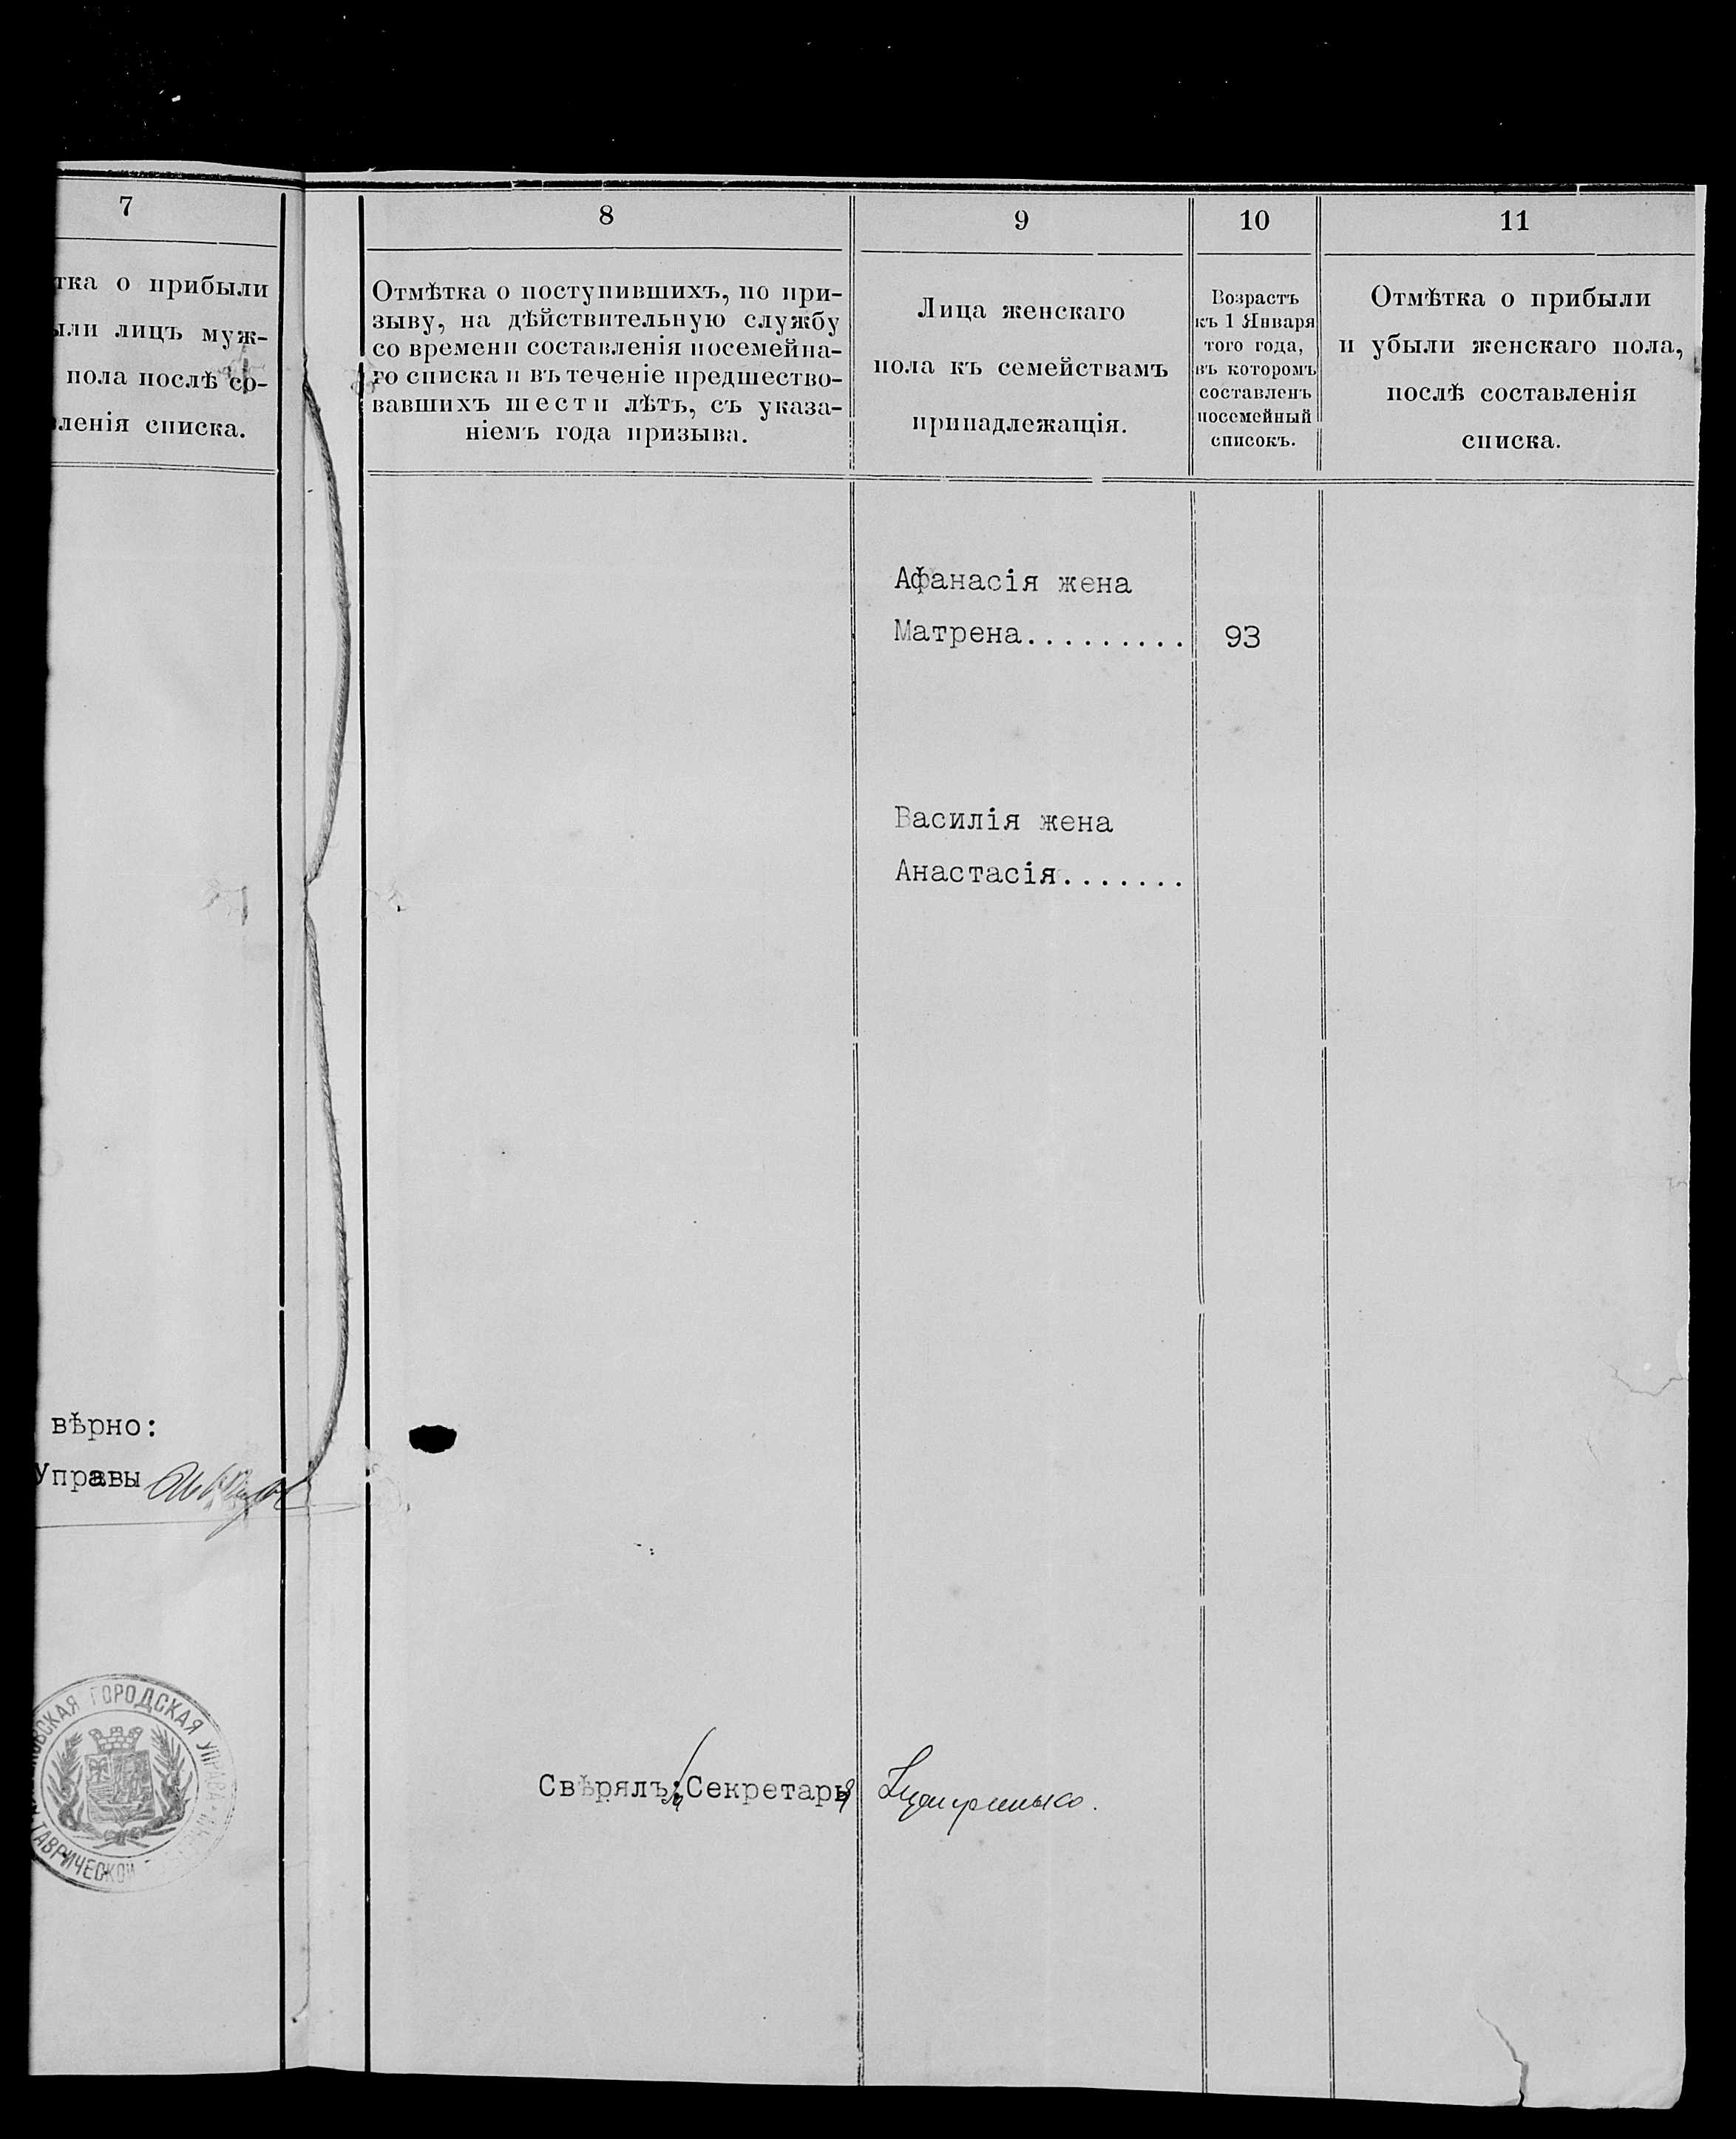 7
тка о прибыли
ыли лицъ муж-
пола послѣ со-
вленія списка.
8
Отмѣтка о поступившихъ, по при-
зыву, на дѣйствительную службу
со времени составленія посемейна-
го списка и въ теченіе предшество-
вавшихъ шести лѣтъ, съ указа-
ніемъ года призыва.
9
Лица женскаго
пола къ семействамъ
принадлежащія.
10
Возрастъ
къ 1 Января
того года,
въ которомъ
составленъ
посемейный
списокъ.
11
Отмѣтка о прибыли
и убыли женскаго пола,
послѣ составленія
списка.
Афанасія жена
Матрена......... 93
Василія жена
Анастасія.......
вѣрно:
Управы
ВСКАЯ ГОРОДСКАЯ УПРАВА
ТАВРИЧЕСКОЙ
Свѣрялъ: Секретарь